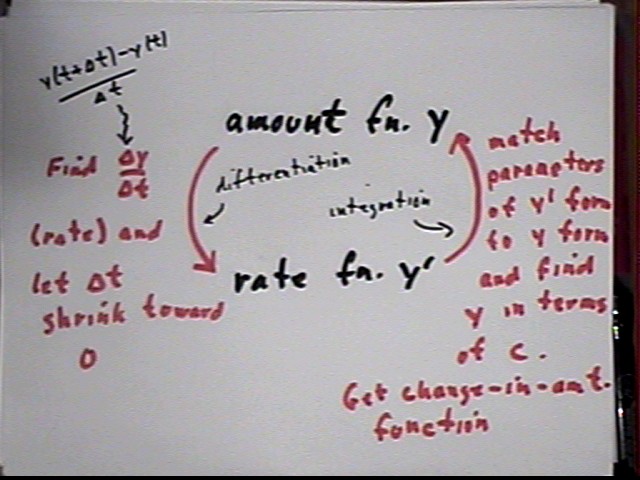 y(t+Δt)-y(t)
Δt
Find Δy
Δt
(rate) and
let Δt
shrink toward
0
amount fn. y
differentiation
integration
rate fn. y'
match
parameters
of y' form
to y form
and find
y in terms
of c.
Get change-in-amt.
function